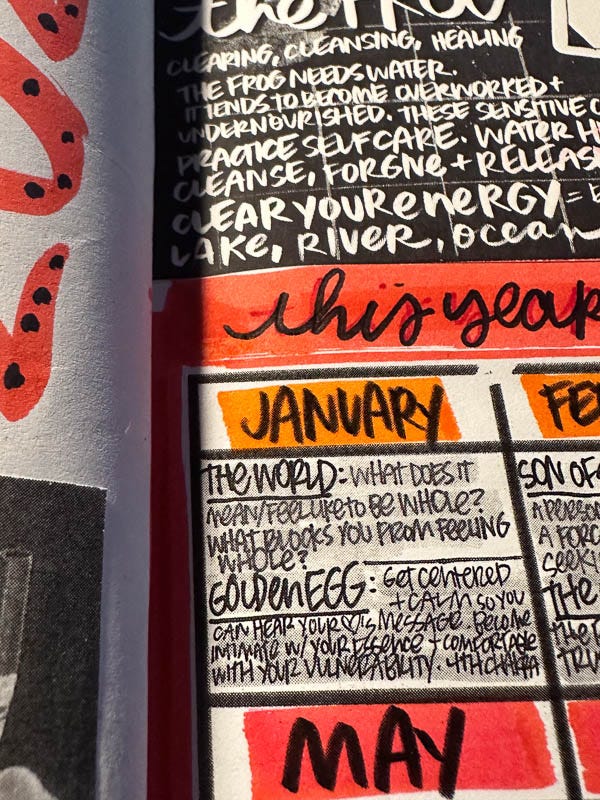 the FROG
CLEARING, CLEANSING, HEALING
THE FROG NEEDS WATER.
IT TENDS TO BECOME OVERWORKED +
UNDERNOURISHED. THESE SENSITIVE
PRACTICE SELF CARE. WATER
CLEANSE, FORGIVE + RELEASE
CLEAR YOUR ENERGY =
LAKE, RIVER, OCEAN
this year
JANUARY
THE WORLD: WHAT DOES IT
MEAN/FEEL LIKE TO BE WHOLE?
WHAT BLOCKS YOU FROM FEELING
WHOLE?
GOLDEN EGG: GET CENTERED
+ CALM SO YOU
CAN HEAR YOUR ♡'S MESSAGE. BECOME
INTIMATE W/ YOUR ESSENCE + COMFORTABLE
WITH YOUR VULNERABILITY. 4TH CHAKRA
FE
SON OF
A PERSON
A FORC
SEEKI
THE
THE
TRU
MAY